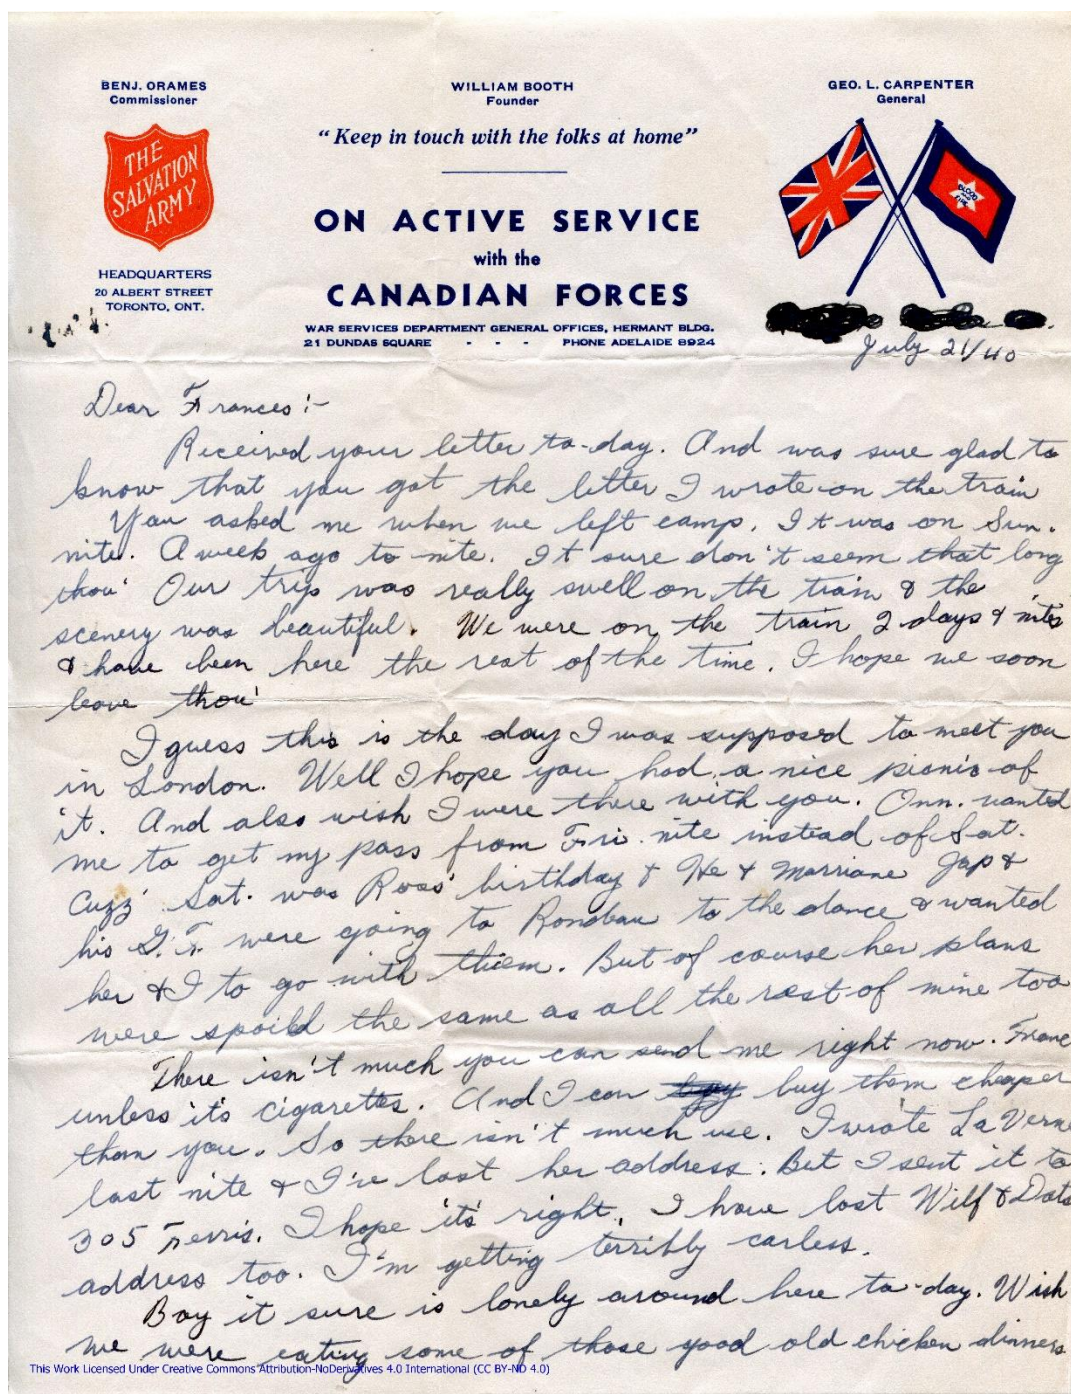 BENJ. ORAMES
Commissioner
WILLIAM BOOTH
Founder
GEO. L. CARPENTER
General
"Keep in touch with the folks at home"
THE
SALVATION
ARMY
BLOOD
AND
FIRE
ON ACTIVE SERVICE
with the
CANADIAN FORCES
HEADQUARTERS
20 ALBERT STREET
TORONTO, ONT.
WAR SERVICES DEPARTMENT GENERAL OFFICES, HERMANT BLDG.
21 DUNDAS SQUARE - - - PHONE ADELAIDE 8924
July 21/40
Dear Frances:-
Received your letter to-day. And was sure glad to
know that you got the letter I wrote on the train
You asked me when we left camp. It was on Sun.
nite. A week ago to nite. It sure don't seem that long
thou' Our trip was really swell on the train & the
scenery was beautiful. We were on the train 2 days & nites
& have been here the rest of the time. I hope we soon
leave thou'
I guess this is the day I was supposed to meet you
in London. Well I hope you had a nice picnic of
it. And also wish I were there with you. Onn. wanted
me to get my pass from Fri. nite instead of Sat.
Cuzz' Sat. was Ross' birthday & He & Marriane Jap &
his G.F. were going to Rondeau to the dance & wanted
her & I to go with them. But of course her plans
were spoild the same as all the rest of mine too
There isn't much you can send me right now. Franc
unless it's cigarettes. And I can buy them cheaper
than you. So there isn't much use. I wrote La Verne
last nite & I've lost her address. But I sent it to
305 Ferris. I hope it's right. I have lost Wilf & Dots
address too. I'm getting terribly carless.
Boy it sure is lonely around here to-day. Wish
we were eating some of those good old chicken dinners
This Work Licensed Under Creative Commons Attribution-NoDerivatives 4.0 International (CC BY-ND 4.0)